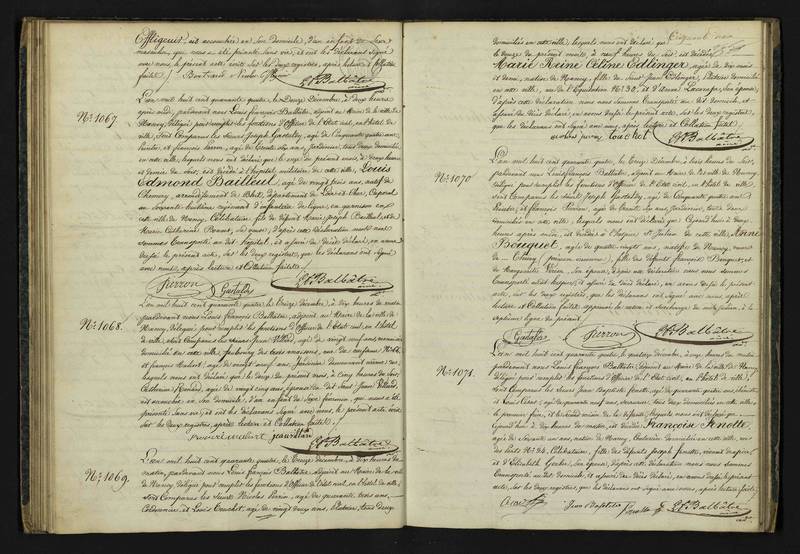 accouchée en son domicile, d'un enfant du Sexe
masculin, que nous a été présenté sans vie, et ont les déclarans signé
avec nous, le présent acte inscrit sur les deux registres, après lecture et Collation
faites.
Ls. fs. Balbâtre
adj.
No: 1067.
L'an mil huit cent quarante quatre, le Douze Décembre, à deux heures
après midi, pardevant nous Louis François Balbâtre, adjoint au Maire de la ville de
Nancy, Délégué pour remplir les fonctions d'Officier de l'Etat civil, en l'hôtel de
ville, Sont Comparus les Sieurs Joseph Gastaldy, agé de Cinquante quatre ans,
et François Pierron, agé de ans, jardinier, tous deux domiciliés
en cette ville, lesquels nous ont déclaré que le onze du présent mois, à deux heures
et demie du soir, est décédé à l'hôpital militaire de cette ville, Louis
Edmond Bailleul, agé de vingt trois ans, natif de
Chemery, arrondissement de Blois, département de Loir-et-Cher, Caporal
au Soixante huitième régiment d'infanterie de ligne, en garnison en
cette ville de Nancy, Célibataire, fils de défunt Marie Joseph Bailleul, et de
Marie Catherine Bonnet, sa veuve, d'après cette déclaration nous nous
sommes transporté au dit hôpital, et assuré du décès déclaré, en avons
dressé le présent acte, sur les deux registres, que les déclarans ont signé
avec nous, après lecture et Collation faites.
Pierron Gastaldy Ls. fs. Balbâtre
adj.
No: 1068.
L'an mil huit cent quarante quatre, le Treize décembre, à dix heures du matin
pardevant nous Louis François Balbâtre, adjoint au Maire de la ville de
Nancy, Délégué pour remplir les fonctions d'Officier de l'Etat civil, en l'hôtel
de ville, Sont Comparus les Sieurs Jean Villard, agé de vingt neuf ans,
domicilié en cette ville, faubourg des trois maisons,
et François agé de vingt neuf ans, jardinier demeurant même rue,
lesquels nous ont déclaré que le douze du présent mois, à Cinq heures du Soir,
Catherine agée de vingt cinq ans, épouse du dit Sieur Jean Villard,
est accouchée en son domicile, d'un enfant du Sexe féminin, que nous a été
présenté sans vie, et ont les déclarans signé avec nous, le présent acte inscrit
sur les deux registres après lecture et Collation faites.
jean villard Ls. fs. Balbâtre
adj.
No: 1069.
L'an mil huit cent quarante quatre, le Treize décembre, à dix heures du
matin, pardevant nous Louis François Balbâtre, adjoint au Maire de la ville
de Nancy, Délégué pour remplir les fonctions d'Officier de l'Etat civil, en l'hôtel de ville,
Sont Comparus les Sieurs Nicolas Perrin, agé de quarante trois ans,
Cordonnier, et Louis Touchot, agé de vingt deux ans, tous deux
domiciliés en cette ville, lesquels nous ont déclaré que
le Douze du présent mois, à neuf heures du Soir, est décédée
Marie Reine Céline Edlinger, agée de dix mois
et demi, native de Nancy, fille de Sieur Jean Edlinger, domicilié
en cette ville, rue de l'Equitation No. 30, et d'Anne son épouse,
D'après cette déclaration nous nous sommes transporté au dit domicile, et
assuré du décès déclaré, en avons dressé le présent acte, sur les deux registres,
que les déclarans ont signé avec nous, après lecture et Collation faites.
touchot Ls. fs. Balbâtre
adj.
No: 1070
L'an mil huit cent quarante quatre, le Treize Décembre, à trois heures du Soir,
pardevant nous Louis François Balbâtre, adjoint au Maire de la ville de Nancy
Délégué pour remplir les fonctions d'Officier de l'Etat civil, en l'hôtel de ville,
Sont Comparus les Sieurs Joseph Gastaldy, agé de Cinquante quatre ans,
et François Pierron, agé de ans, jardinier, tous deux
domiciliés en cette ville, lesquels nous ont déclaré que Cejourd'hui à deux
heures après midi, est décédée à l'hospice St. Julien de cette ville, Anne
Bouquet, agée de quatre vingts ans, native de Nancy, veuve
de Thiery (prénom inconnu), fille des défunts François Bouquet, et
de Marguerite son épouse, d'après cette déclaration nous nous sommes
transporté au dit hospice, et assuré du décès déclaré, en avons dressé le présent
acte, sur les deux registres, que les déclarans ont signé avec nous après
lecture et Collation faites,
septième ligne du présent.
Gastaldy Pierron Ls. fs. Balbâtre
adj.
No: 1071.
L'an mil huit cent quarante quatre, le quatorze décembre, à dix heures du matin
pardevant nous Louis François Balbâtre, adjoint au Maire de la ville de Nancy,
Délégué pour remplir les fonctions d'Officier de l'Etat civil, en l'hôtel de ville,
Sont Comparus les Sieurs Jean Baptiste agé de quarante
et Louis agé de quarante neuf ans, tous deux domiciliés en cette ville,
le premier frère, et le second voisin de la défunte, lesquels nous ont déclaré que
Cejourd'hui à dix heures du matin, est décédée Françoise
agée de Soixante un ans, native de Nancy, domiciliée en cette ville, rue
No. 24, Célibataire, fille des défunts Joseph
et d'Elisabeth son épouse, d'après cette déclaration nous nous sommes
transporté au dit domicile, et assuré du décès déclaré, en avons dressé le présent
acte, sur les deux registres, que les déclarans ont signé avec nous, après lecture faite
Jean Baptiste Ls. fs. Balbâtre
adj.